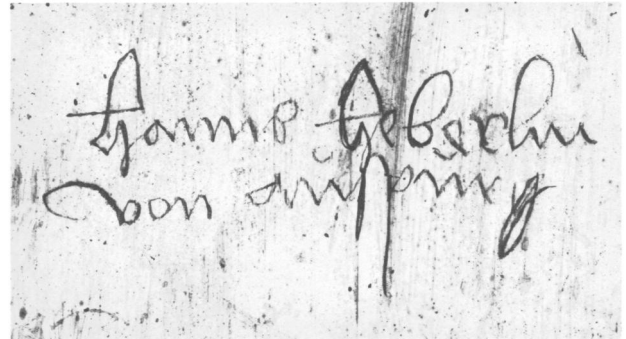 hanns heberlin
von auspurg